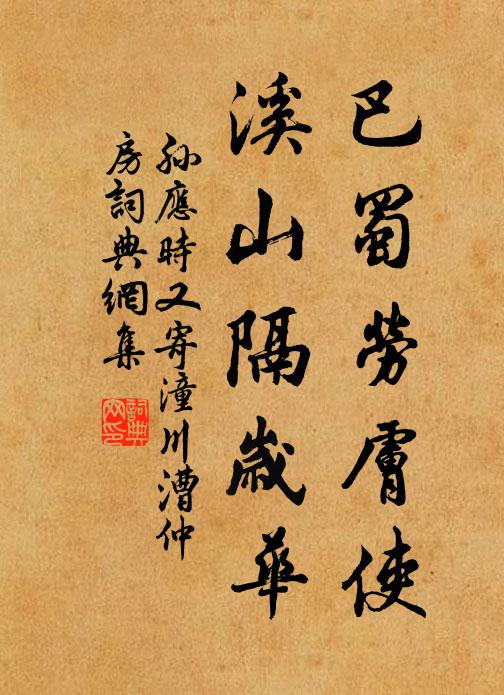 巴蜀勞膚使
溪山隔歲華
孫應時又寄潼川漕仲
房詞典網集
詞典網印